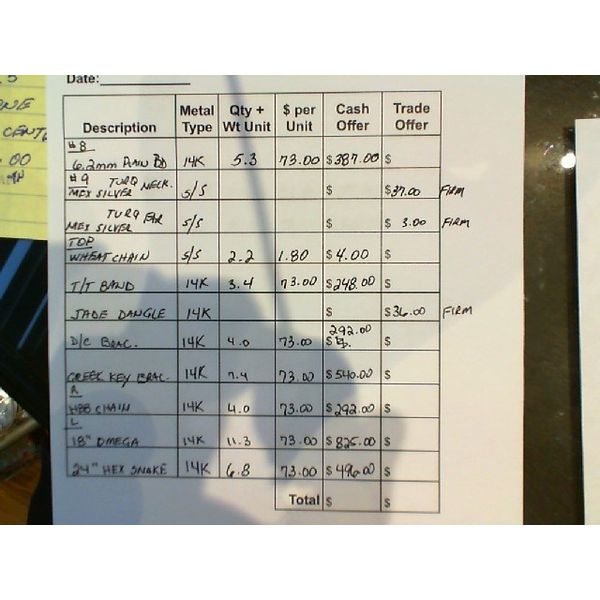 Date:
Description Metal Type Qty + Wt Unit $ per Unit Cash Offer Trade Offer
#8
6.2mm PLAIN BD 14K 5.3 73.00 $387.00 $
#9 TURQ NECK.
MEX SILVER S/S $ $37.00 FIRM
TURQ EAR
MEX SILVER S/S $ $ 3.00 FIRM
TOP
WHEAT CHAIN S/S 2.2 1.80 $4.00 $
T/T BAND 14K 3.4 73.00 $248.00 $
JADE DANGLE 14K $ $36.00 FIRM
292.00
D/C BRAC. 14K 4.0 73.00 $ $
GREEK KEY BRAC. 14K 7.4 73.00 $540.00 $
R
HBB CHAIN 14K 4.0 73.00 $292.00 $
L
18" OMEGA 14K 11.3 73.00 $825.00 $
24" HEX SNAKE 14K 6.8 73.00 $496.00 $
Total $ $
.00